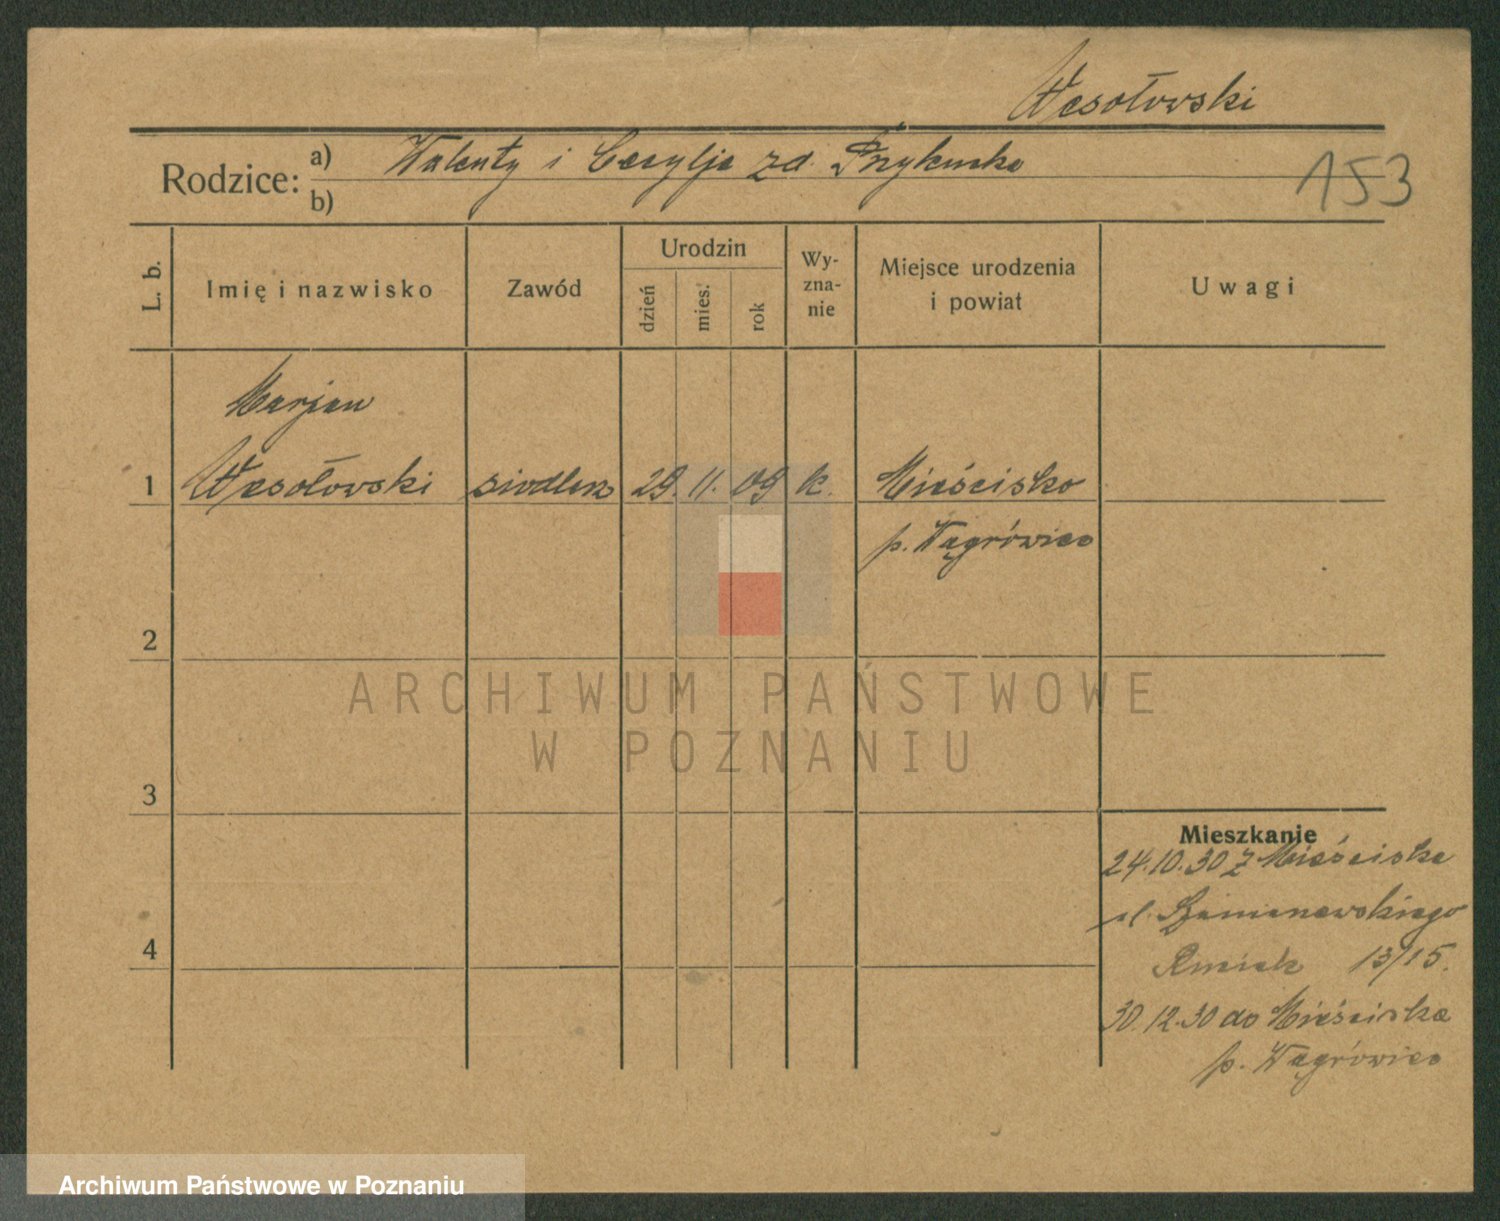 Wesołowski
Rodzice: a) Walenty i Cecylja zd.
b)
153
L. b. Imię i nazwisko Zawód Urodzin dzień mies. rok Wy-zna-nie Miejsce urodzenia i powiat Uwagi
Marjan
1 Wesołowski siodlarz 29. 11. 09 k. Mieścisko
p. Wągrówiec
2
ARCHIWUM PAŃSTWOWE
W POZNANIU
3
Mieszkanie
24.10.30 z Mieściska
ul. Szamarzewskiego
4
13/15.
30.12.30 do Mieściska
p. Wągrówiec
Archiwum Państwowe w Poznaniu